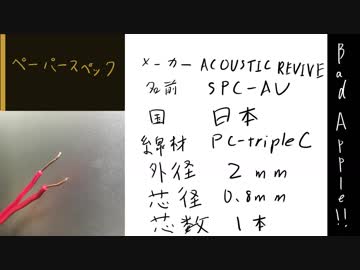 ペーパースペック
メーカー ACOUSTIC REVIVE
名前 SPC-AV
国 日本
線材 PC-tripleC
外径 2mm
芯径 0.8mm
芯数 1本
Bad Apple!!